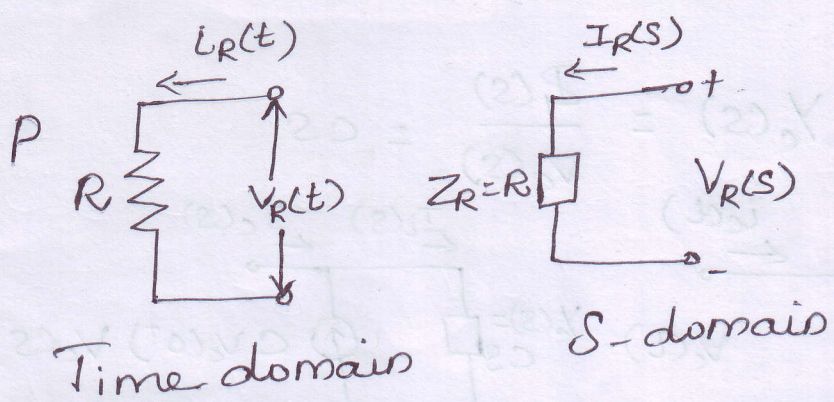 i_R(t)
P
R
V_R(t)
Time domain
I_R(S)
+
Z_R=R
V_R(S)
-
S-domain